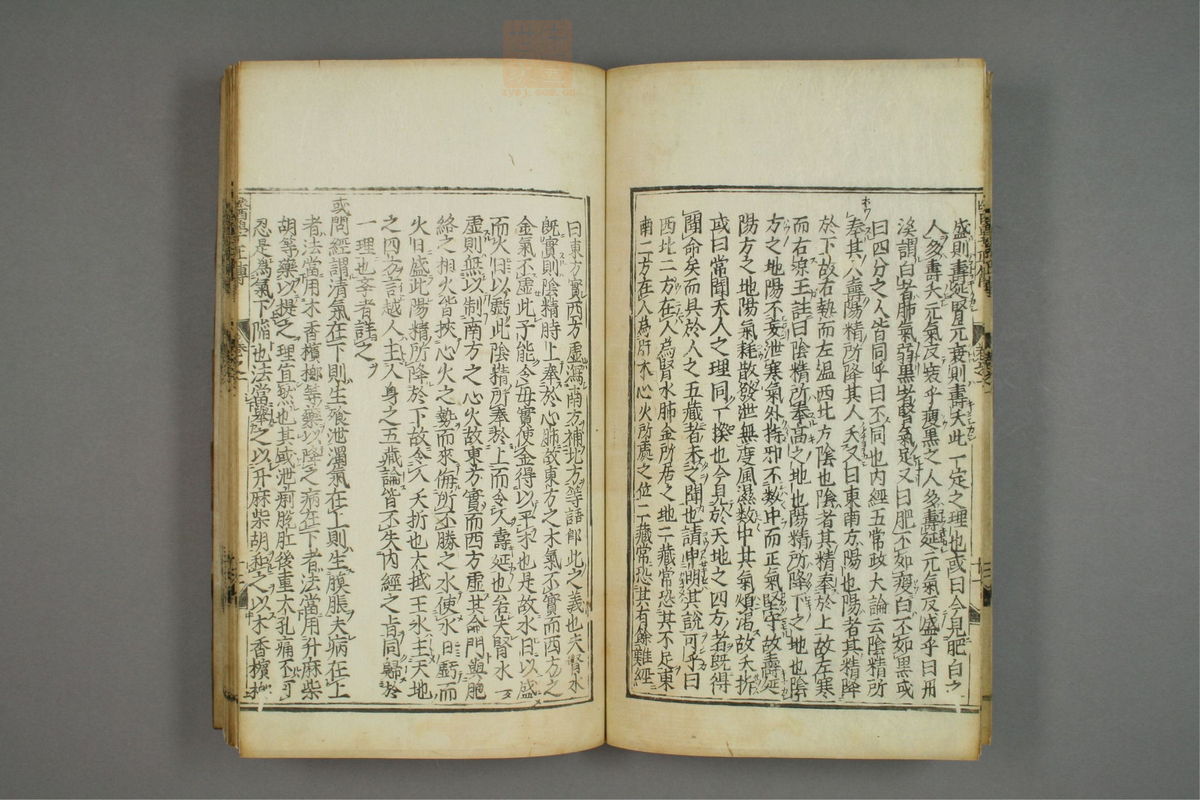 盛則壽延腎元衰則壽夭此一定之理也或曰今見肥白之
人多壽夭元氣反衰乎瘦黑之人多壽延元氣反盛乎曰丹
溪謂白者肺氣弱黑者腎氣足又曰肥不如瘦白不如黑或
曰四分之人皆同乎曰不同也内經五常政大論云陰精所
奉其人壽陽精所降其人夭又曰東南方陽也陽者其精降
於下故右熱而左温西北方陰也陰者其精奉於上故左寒
而右凉王註曰陰精所奉高之地也陽精所降下之地也陰
方之地陽不妄泄寒氣外持邪不数中而正氣堅守故壽延
陽方之地陽氣耗散發泄無度風濕数中其氣煩渇故夭折
或曰常聞天人之理同一揆也今見於天地之四方者既得
聞命矣而具於人之五藏者未之聞也請申明其說可乎曰
西北二方在人為腎水肺金所居之地二藏常恐其不足東
南二方在人為肝木心火所處之位二藏常恐其有餘難經
曰東方實西方虚瀉南方補北方等語即此之義也夫腎水
既實則陰精時上奉於心肺故東方之木氣不實而西方之
金氣不虚此子能令母實使金得以平木也是故水日以盛
而火日以虧此陰精所奉於上而令人壽延也若夫腎水一
虚則無以制南方之心火故東方實而西方虚其命門與胞
絡之相火皆挾心火之勢而來侮所不勝之水使水日虧而
火日盛此陽精所降於下故令人夭折也大抵王氷主天地
之四方言越人主人身之五藏論皆不失内經之旨同歸於
一理也幸者詳之
或問經謂清氣在下則生飱泄濁氣在上則生䐜脹夫病在上
者法當用木香檳榔等藥以降之病在下者法當用升麻柴
胡等藥以提之理宜然也其或泄痢脫肛後重大孔痛不可
忍是為氣下陷也法當舉之以升麻柴胡和之以木香檳榔